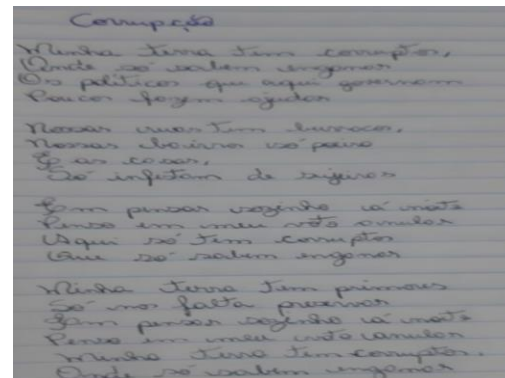 Corrupção
Minha terra tem corruptos,
Onde só sabem enganar
Os políticos que aqui governam
Poucos fazem ajudar
Nossas ruas tem buracos,
Nossos bairros só
E as casas,
Só infestam de sujeiras
Em pensar sozinho à noite
Penso em meu voto anular
Aqui só tem corruptos
Que só sabem enganar
Minha terra tem primores
Só nos falta preservar
Em pensar sozinho à noite
Penso em meu voto anular
Minha terra tem corruptos,
Onde só sabem enganar